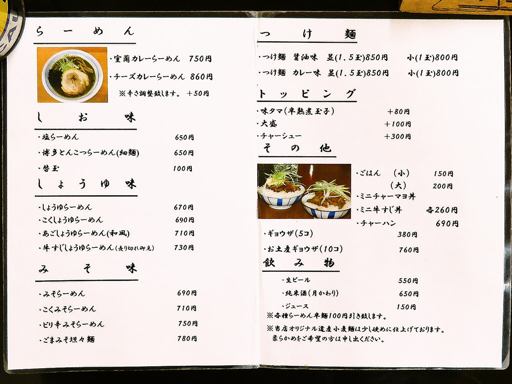 らーめん
・室蘭カレーらーめん 750円
・チーズカレーらーめん 860円
※辛さ調整致します。 +50円
しお味
・塩らーめん 650円
・博多とんこつらーめん(細麺) 650円
・替玉 100円
しょうゆ味
・しょうゆらーめん 670円
・こくしょうゆらーめん 690円
・あごしょうゆらーめん(和風) 710円
・牛すじしょうゆらーめん(売り切れ御免) 730円
みそ味
・みそらーめん 690円
・こくみそらーめん 710円
・ピリ辛みそらーめん 750円
・ごまみそ坦々麺 780円
つけ麺
・つけ麺 醤油味 並(1.5玉)850円 小(1玉)800円
・つけ麺 カレー味 並(1.5玉)850円 小(1玉)800円
トッピング
・味タマ(半熟煮玉子) +80円
・大盛 +100円
・チャーシュー +300円
その他
・ごはん (小) 150円
(大) 200円
・ミニチャーマヨ丼
・ミニ牛すじ丼 各260円
・チャーハン 690円
・ギョウザ(5コ) 380円
・お土産ギョウザ(10コ) 760円
飲み物
・生ビール 550円
・純米酒(月かわり) 650円
・ジュース 150円
※各種らーめん半麺100円引き致します。
※当店オリジナル道産小麦麺は少し硬めに仕上げております。
柔らかめをご希望の方は申し出ください。